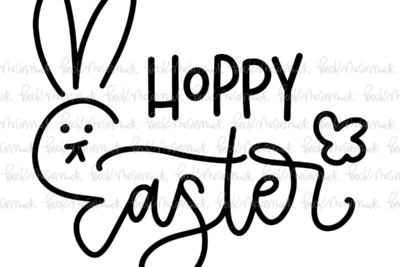 HOPPY
Easter